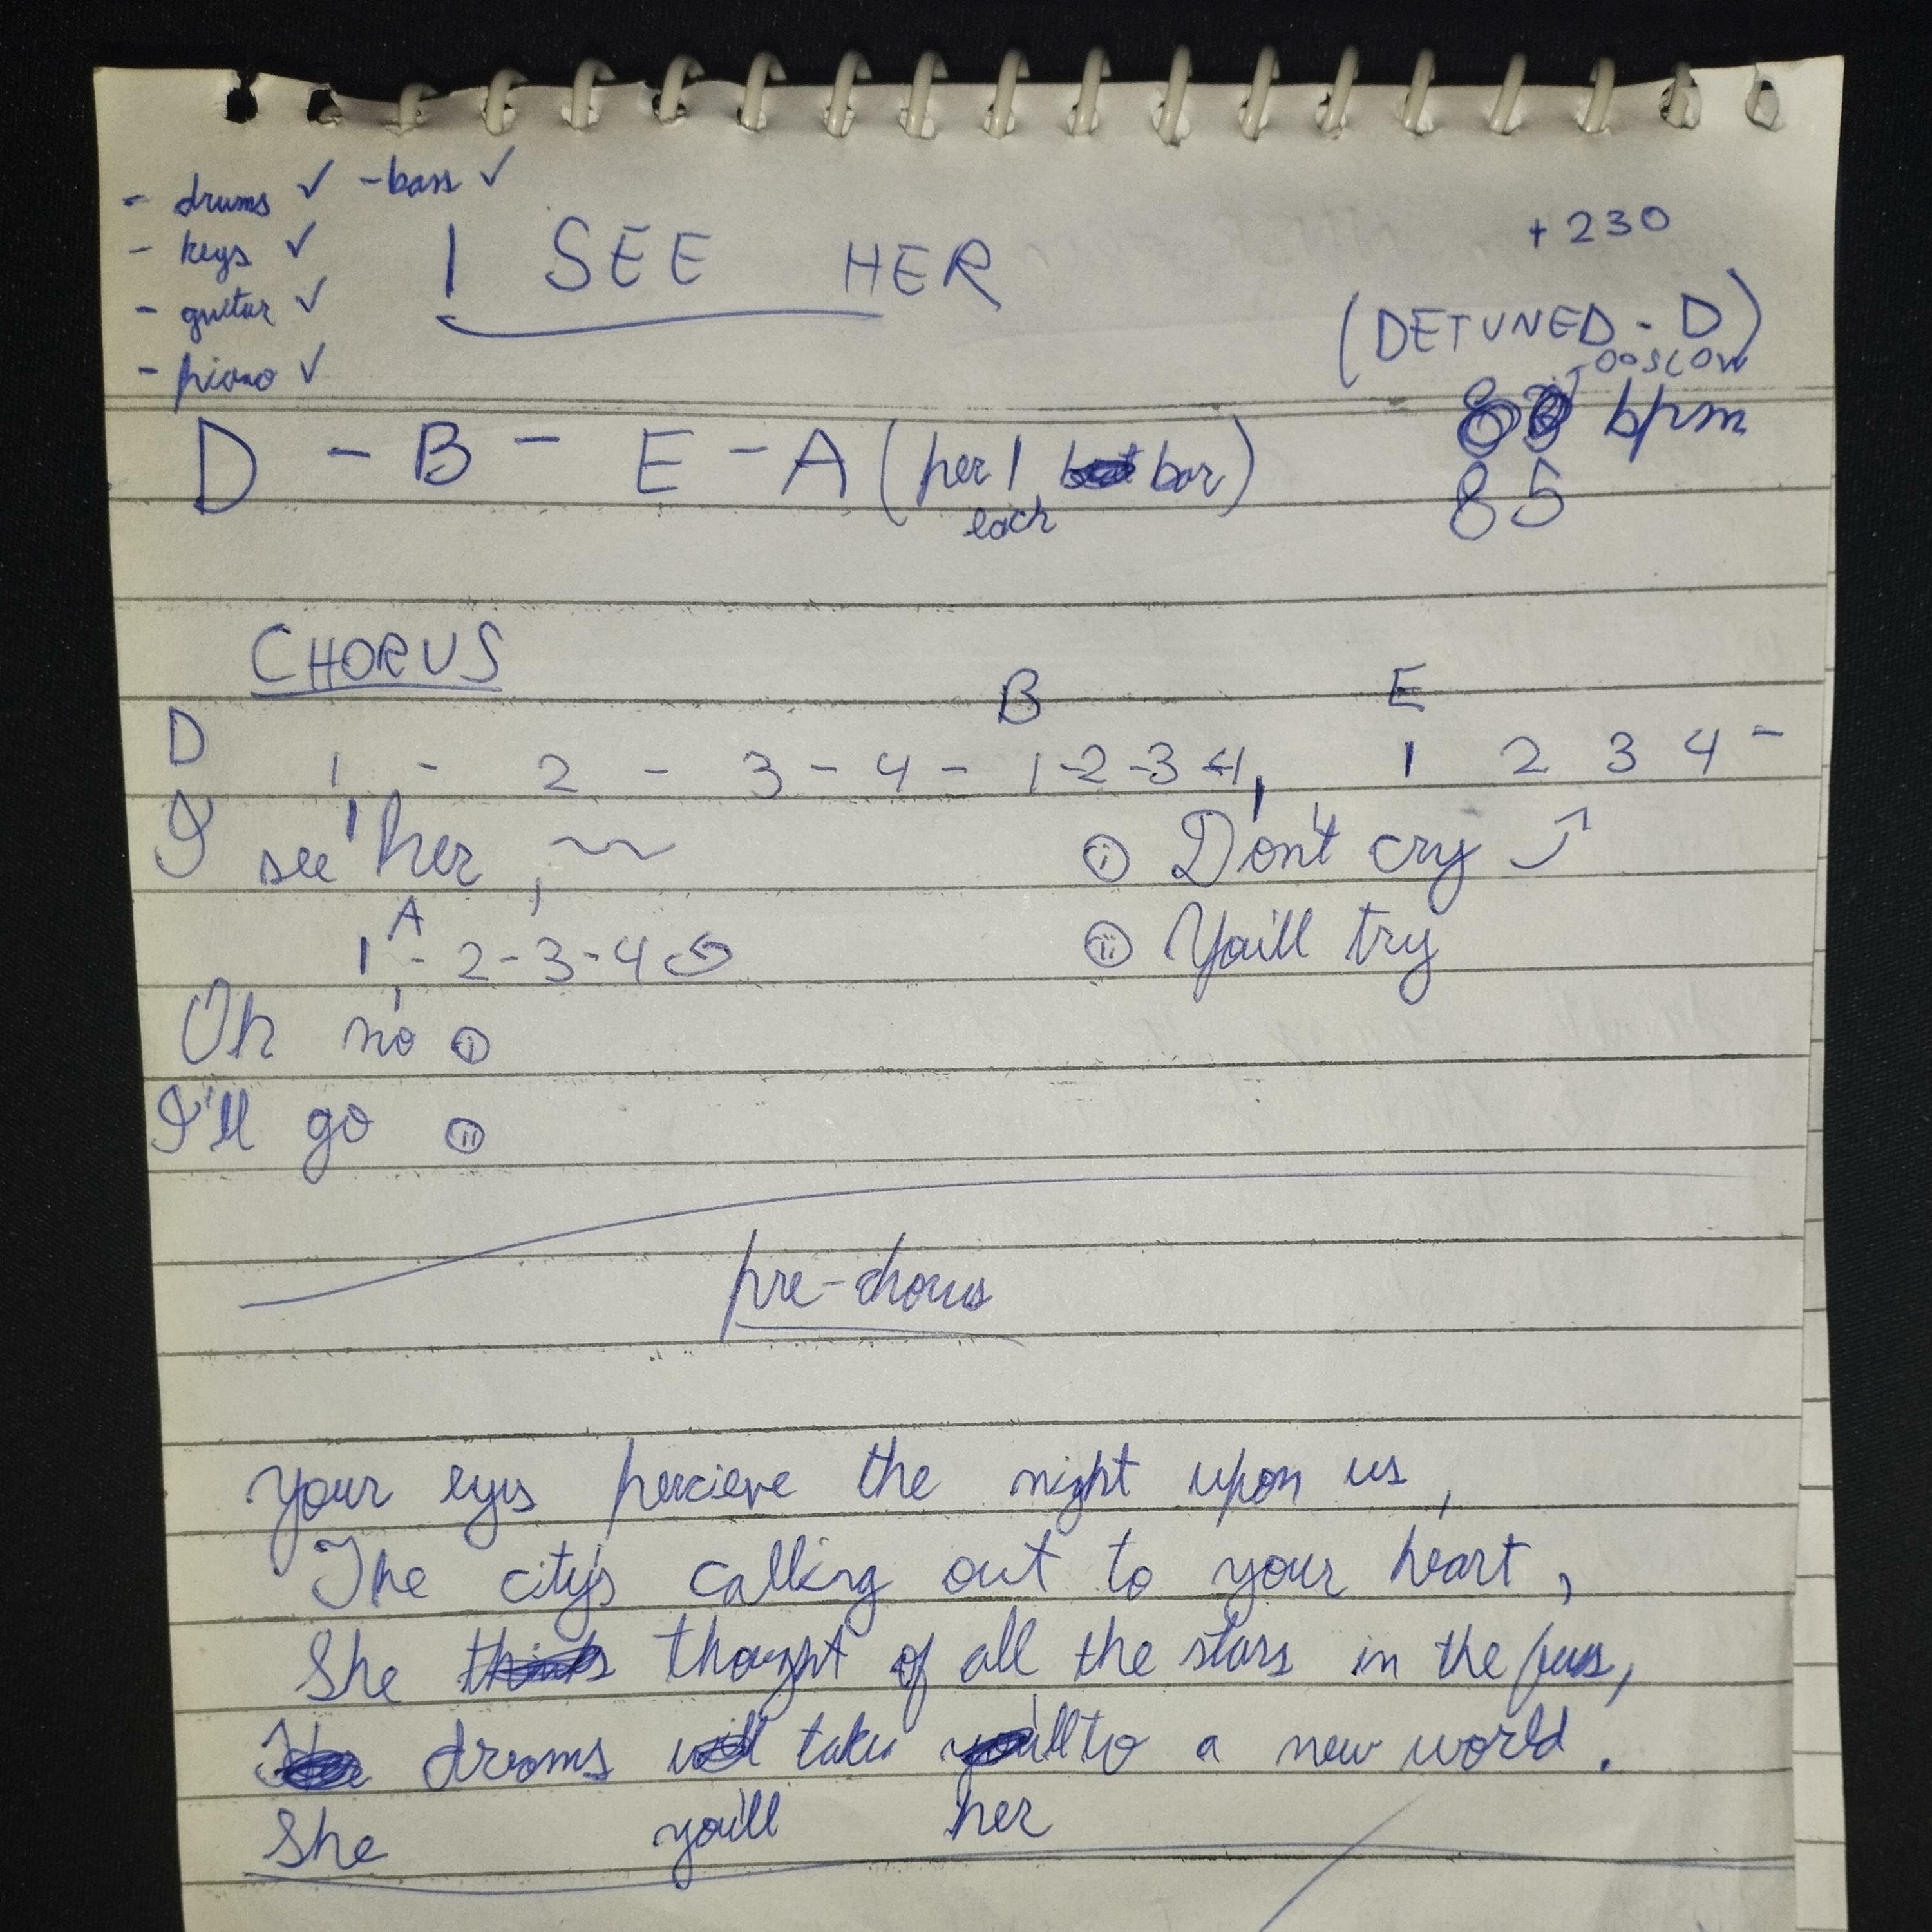 - drums ✓ - bass ✓
- keys ✓
- guitar ✓
- piano ✓
I SEE HER
+ 230
(DETUNED - D)
TOO SLOW
bpm
85
D - B - E - A (per 1 bar)
each
CHORUS
D B E
1 - 2 - 3 - 4 - 1 - 2 - 3 - 4, 1 2 3 4 -
I see her, (i) Don't cry
A
1 - 2 - 3 - 4 (ii) You'll try
Oh no (i)
I'll go (ii)
pre-chorus
Your eyes percieve the night upon us,
The city's calling out to your heart,
She thinks thought of all the stars in the
dreams will take to a new world.
She you'll her